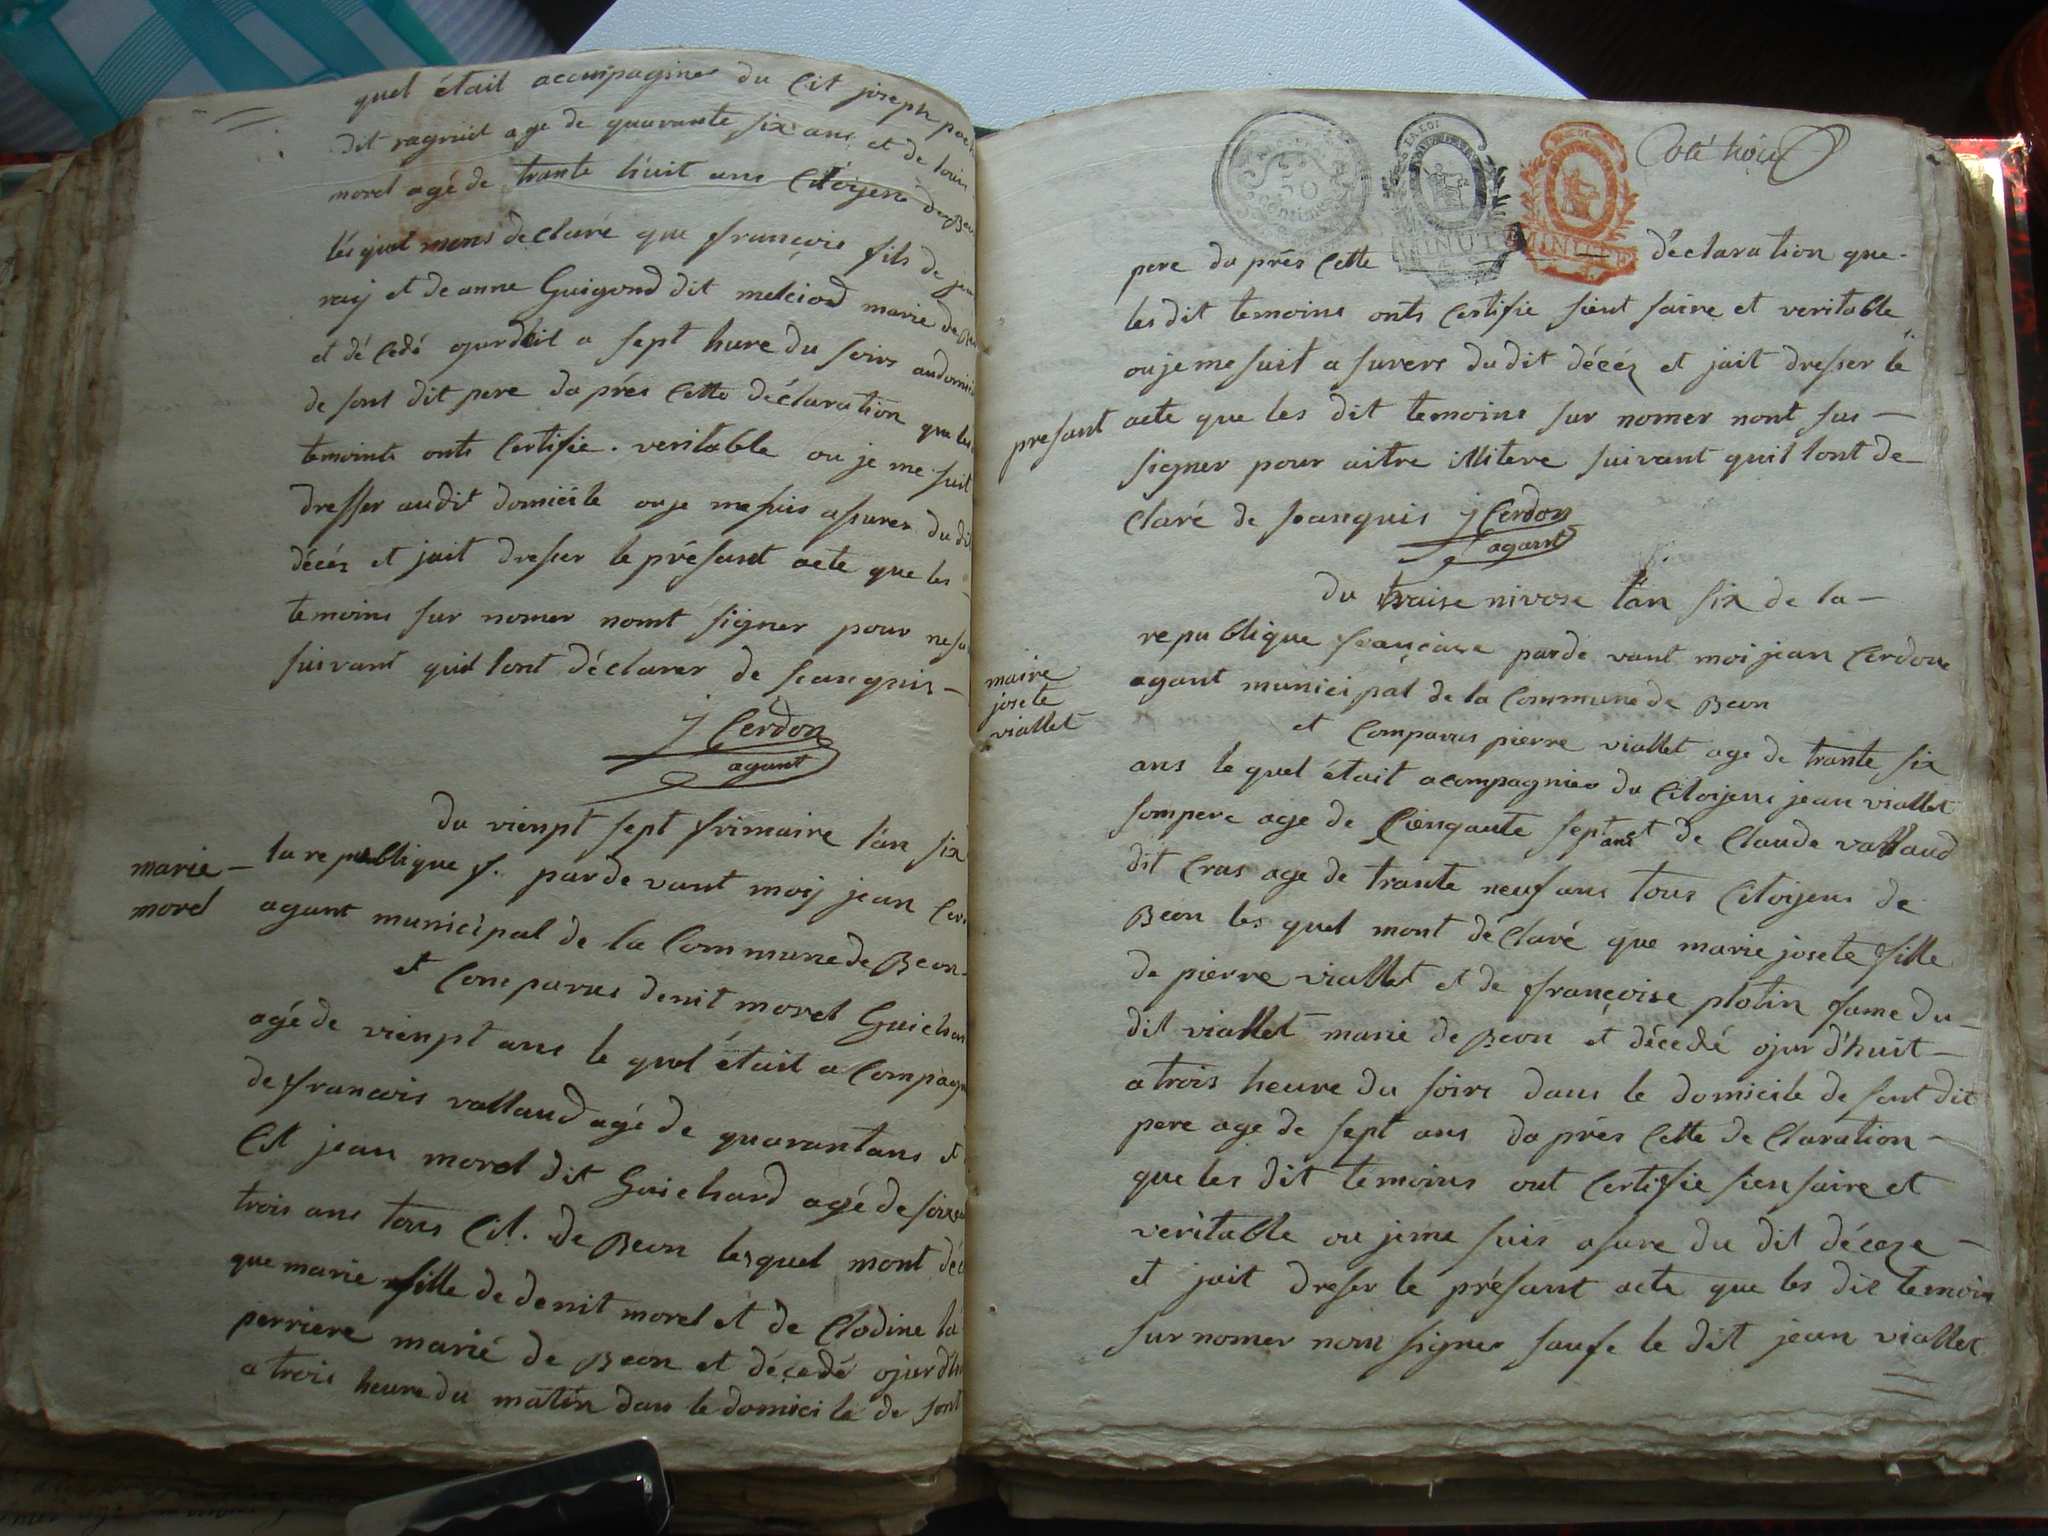 quel était accompagner du Cit joseph
dit ragniet age de quarante six ans et de louis
morel agé de trante huit ans Citoijens de Beon
lesquel mons déclaré que françois fils de
raij et de anne Guigond dit melciod marie de
et dé cedé ojurdhit a sept hure du soirs
de sont dit pere da prés Cette déclaration que les
temoints onts Certifie . veritable ou je me suit
dresser audit domicile ou je me suis asurer du dit
décés et jait dresser le présant acte que les
temoins sur nomer nomt signer pour
suivant quil lont déclarer de Seanquis -
j Cerdon
agant
marie -
morel
du vienpt sept frimaire l'an six
la republique f. parde vant moij jean
agant municipal de la Commune de Beon -
et Comparus denit morel Guichard
agé de vienpt ans le quel était a Compagn
de francois vallaud agé de quarantans et
Cit jean morel dit Guichard agé de
trois ans tous Cit. de Beon lesquel mont
que marie fille de denit morel et de Clodine la
perriere marié de Beon et décedé ojurdh
a trois heure du matin dans le domici le de sont
50
centimes
LA LOI
MINUTE
MINUTE
pere da prés Cette déclaration que -
les dit temoins onts Certifie sient saire et veritable
ou je me suit a surers du dit décéz et jait dresser le
presant acte que les dit temoins sur nomer nont sus -
signer pour aitre illitere suivant quil lont de
claré de seanquis j Cerdon
agant
maire
josete
viallet
du traise nivose l'an six de la -
republique françaisse parde vant moi jean Cerdone
agant municipal de la Commune de Beon
et Comparus pierre viallet age de trante six
ans le quel était acompagnier du Citoijens jean viallet
sompere age de Cienqante sept ans et de Claude vallaud
dit Cras age de trante neuf ans tous Citoijens de
Beon les quel mont déClaré que marie josete fille
de pierre viallet et de françoise plotin fame du -
dit viallet marie de Beon et décedé ojur d'huit -
a trois heure du soirs dans le domicile de sont dit
pere age de sept ans da prés Cette de Claration -
que les dit temoins ont Certifie sien saire et
veritable ou jeme suis asure du dit déceze -
et jait dreser le présant acte que les dit temoin
sur nomer nom signer saufe le dit jean viallet